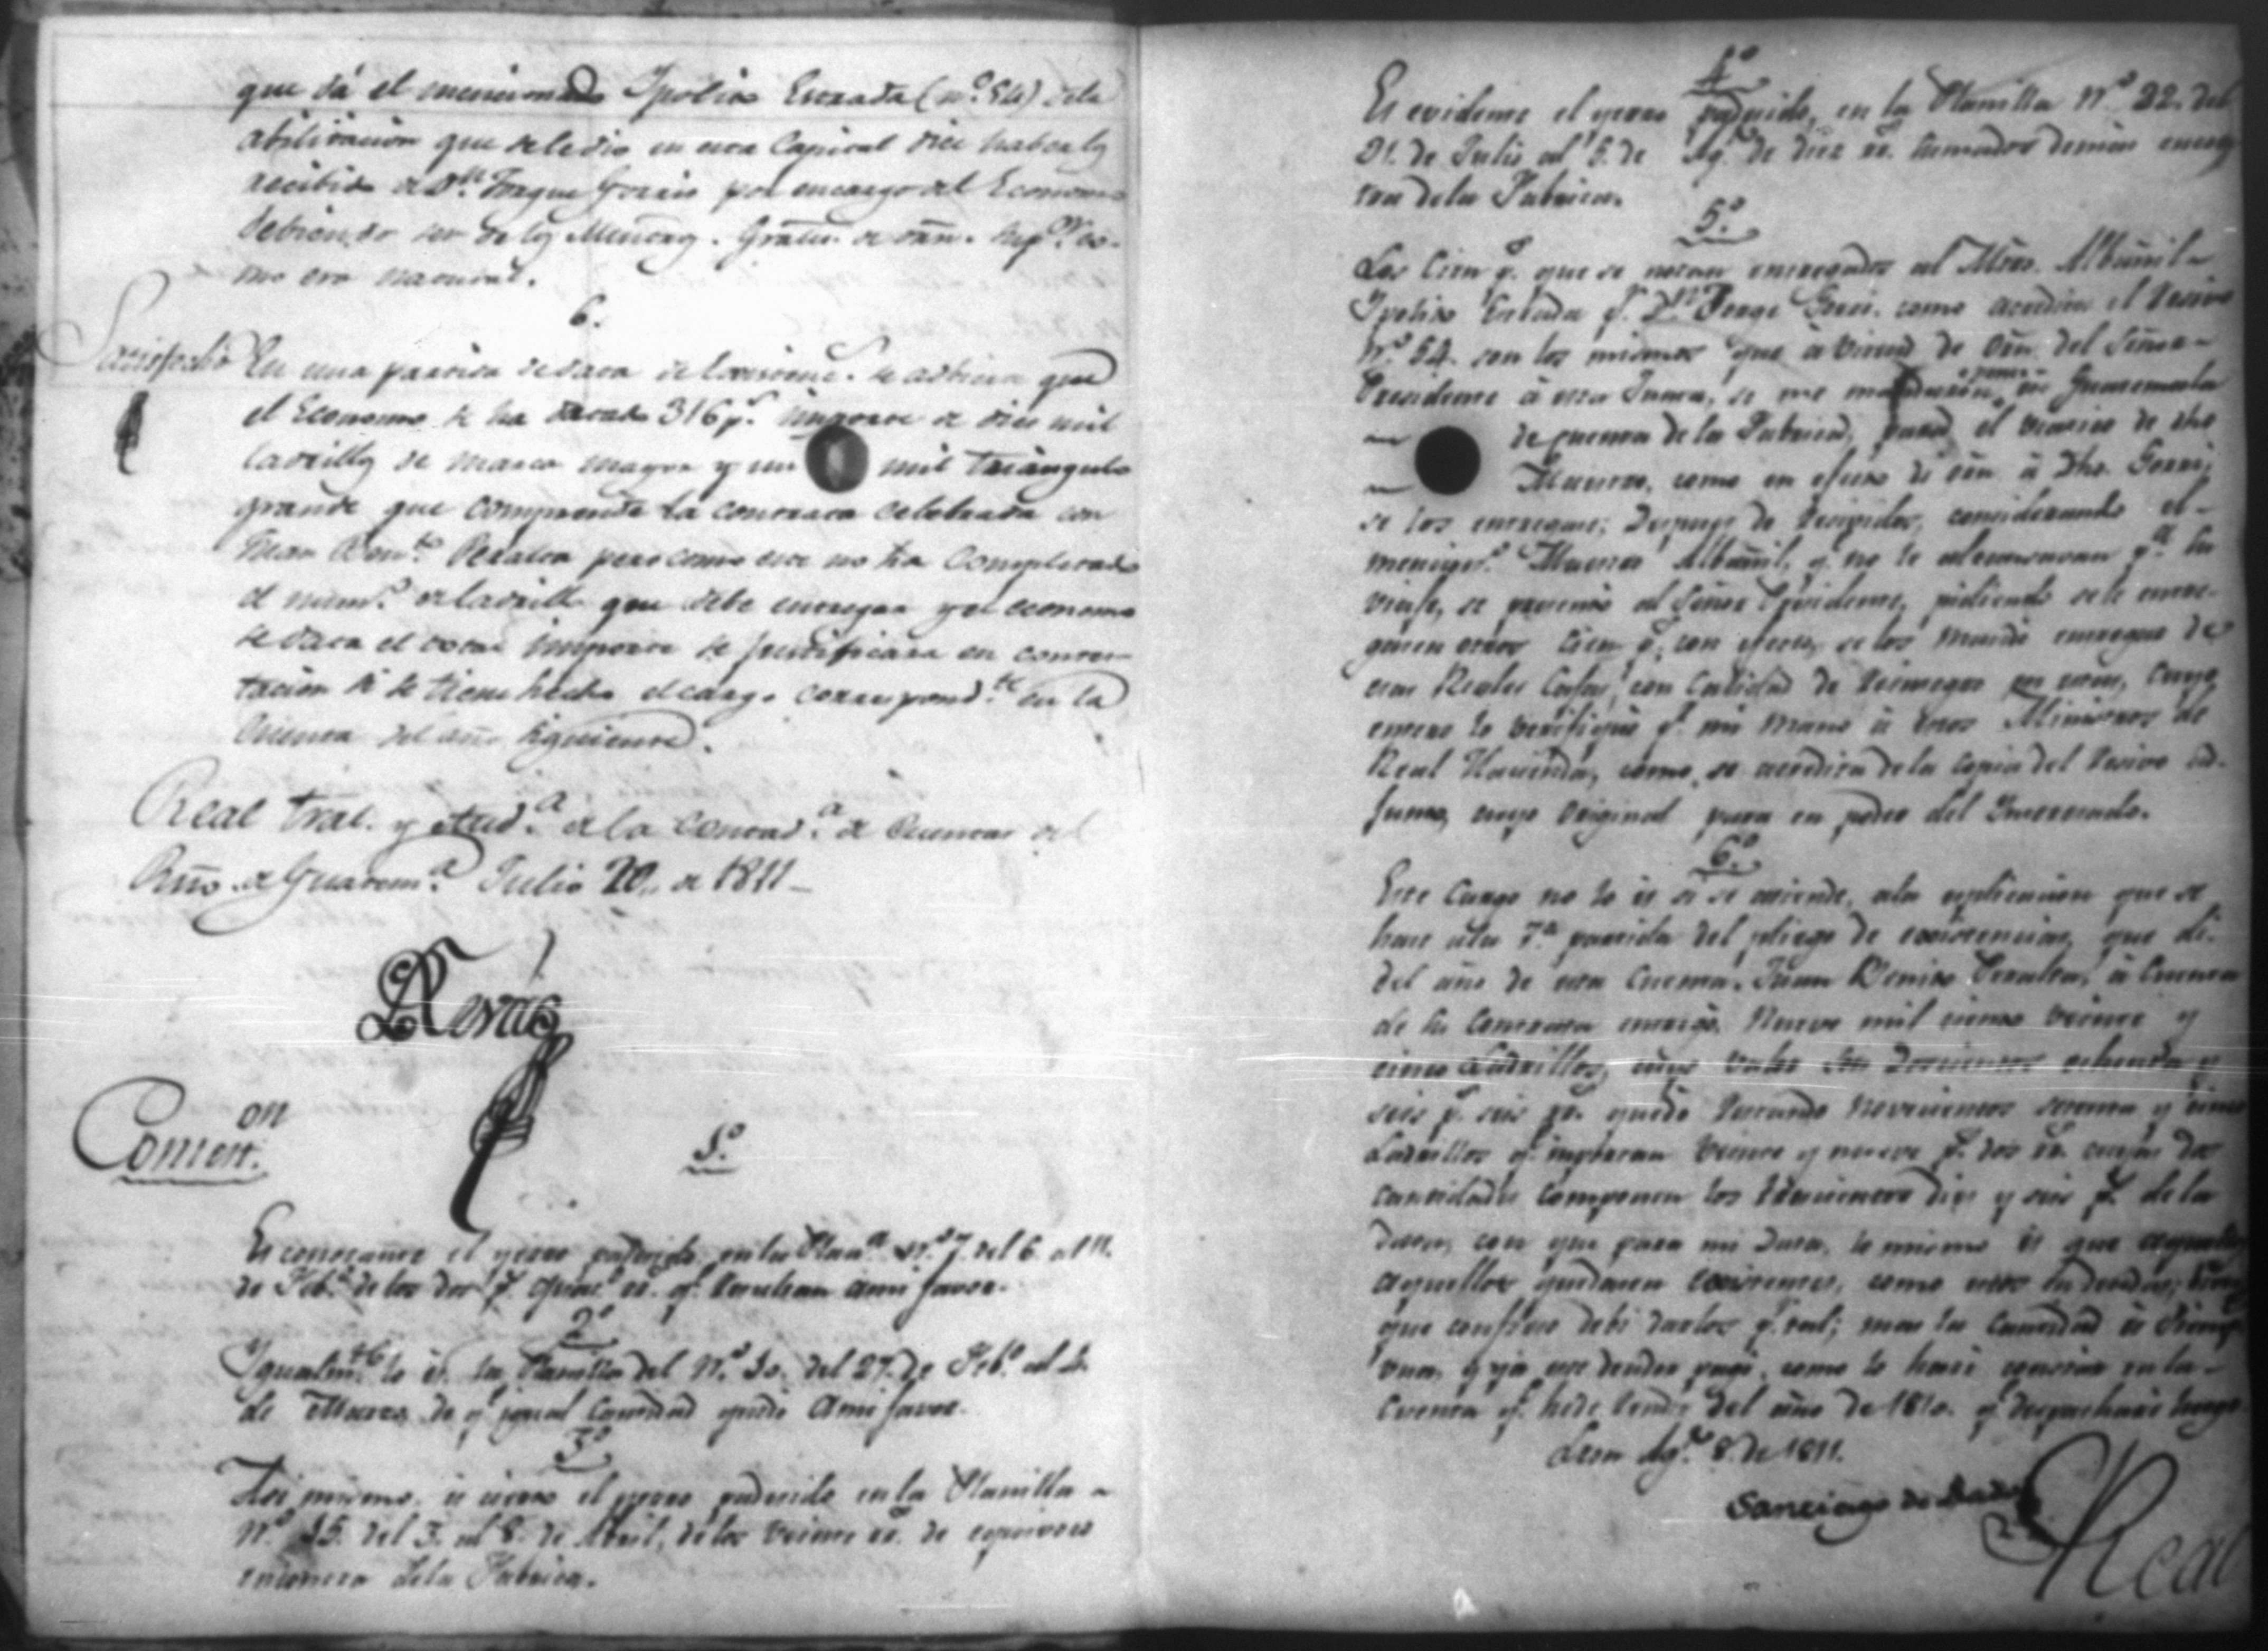 que dá el mencionado Ypolito Estrada (nº 54) dela
abilitacion que sele dio en esta Capital dice haberlos
recibido de Dn. Jorge Gorris por encargo del Economo
debiendo ser de los Mintros. Grales. de
mo era natural.
6.
Satisfecho En una partida de data de se advierte que
el Economo se ha datado 316 ps. importe de dies mil
ladrillos de marca mayor y un mil triangulo
grande que comprende la contrata celebrada con
Juan Peralta pero como este no ha completado
el numo. de ladrillo que debe entregar y el economo
se data el total importe se justificara en contes-
tacion si se tiene hecho el cargo correspondte. en la
Cuenta del año siguiente.
Real Tral. y Auda. de la Contada. de Cuentas del
Rno. de Guatema. Julio 20 de 1811
Conton.
1º
Es constante el yerro padecido en la Plana. nº 7. del 6. al 11.
de Febo. de los dos ps. rs. qe. resultan ami favor.
2º
Igualmte. lo es la Planilla del Nº 10. del 27. de Febo. al 3.
de Marzo, de qe. igual Cantidad quedó Ami favor.
3º
Asi mismo, es cierto el yerro padecido en la Planilla
Nº 15. del 3. al 8. de Abril, de los veinte rs. de equivoco
en contra dela Fabrica.
4º
Es evidente el yerro padecido, en la Planilla Nº 22. del
31. de Julio al 5. de Agto. de diez rs. sumados demas en con
tra dela Fabrica.
5º
Los Cien ps. que se notan entregados al Mtro. Albañil
Ypolito Estrada pr. Dn. Jorge Gorris. como acredita el Recivo
Nº 54. son los mismos que á virtud de Orn. del Señor
Presidente á esta Junta, se me mandaron poner en Guatemala
de cuenta de la Fabrica, para el transito de dho
Maestro, como en efecto di orn. á dho. Gorris
se los entregase; Despues de recividos, considerando el
Maestro Albañil, qe. no le alcansavan pa. su
viaje, se presentó al Señor Presidente, pidiendo se le entre-
gasen otros Cien ps, con efecto, se los mandó entregar de
esas Reales Cajas, con Calidad de reintegro en estas, cuyo
entero lo verifiqué pr. mi mano á estos Ministros de
Real Hacienda, como se acredita de la copia del Recivo ad-
junto, cuyo original para en poder del Interesado.
6º
Este Cargo no lo es si se atiende, ala esplicacion que se
hace ala 7ª partida del pliego de existencias, que di.
del año de esta Cuenta. Juan Benito Peralta, á Cuenta
de su Contrata entregó. Nueve mil ciento veinte y
cinco Ladrillos, cuyo valor son Doscientos ochenta y
seis ps. seis rs. quedó restando Novecientos setenta y cinco
Ladrillos qe. importan veinte y nueve ps. dos rs. cuyas dos
cantidades componen los trescientos diez y seis ps. de la
Data, con que para mi Data, lo mismo es que
aquellos quedasen existentes, como estos en deudas;
que confieso debi darlos pr. tal; mas la Cantidad es siempre
una, y ya ese deudor pagó, como lo haré constar en la
Cuenta qe. hede rendir del año de 1810. qe. despacharé luego
Leon Agto. 8 de 1811.
Santiago de
Real